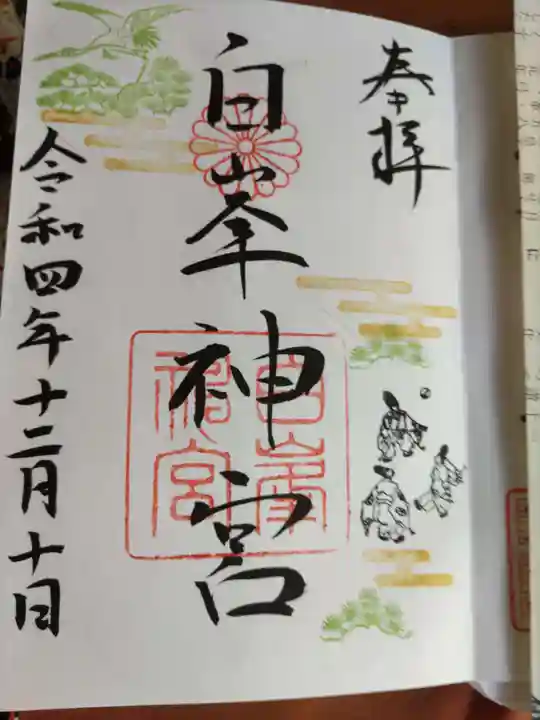 奉拝
白峯神宮
白峯神宮
令和四年十二月十日